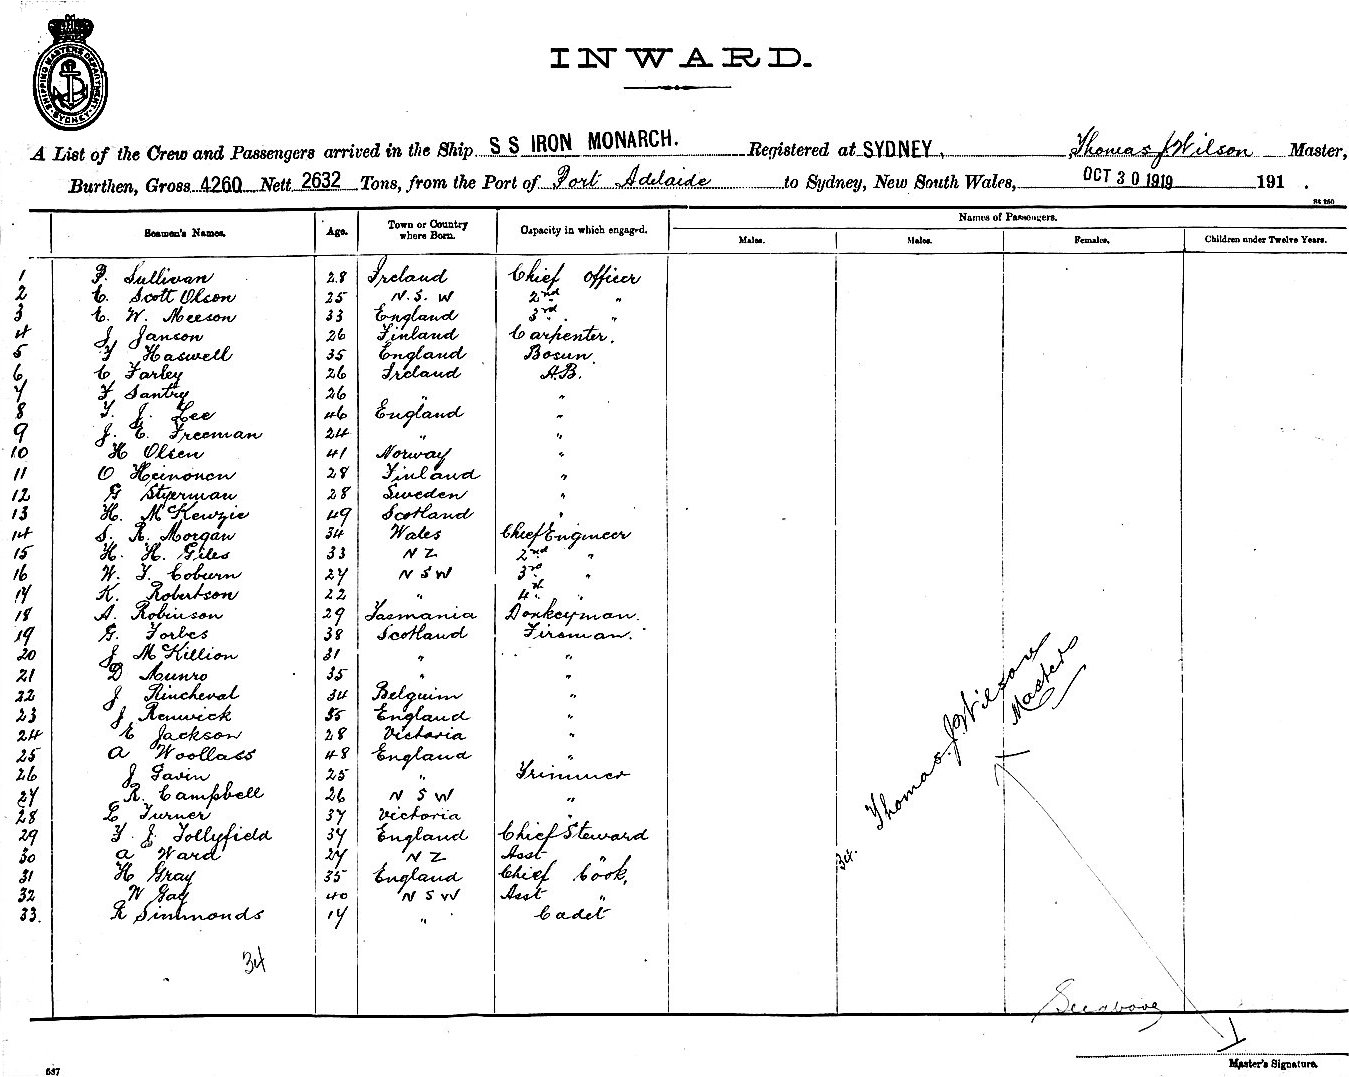 SHIPPING MASTERS DEPARTMENT SYDNEY
INWARD.
A List of the Crew and Passengers arrived in the Ship S S IRON MONARCH. Registered at SYDNEY, Thomas J Wilson Master,
Burthen, Gross 4260 Nett 2632 Tons, from the Port of Port Adelaide to Sydney, New South Wales, OCT 30 1919 191 .
Seamen's Names. Age. Town or Country where Born. Capacity in which engaged. Names of Passengers.
Males. Males. Females. Children under Twelve Years.
1 P. Sullivan 28 Ireland Chief Officer
2 C. Scott Olson 25 N.S.W 2nd "
3 E. W. Meeson 33 England 3rd "
4 J. Janson 26 Finland Carpenter.
5 F Haswell 35 England Bosun.
6 C Farley 26 Ireland A.B.
7 F Santry 26 " "
8 T. J. Lee 46 England "
9 J. E. Freeman 24 " "
10 H Olsen 41 Norway "
11 O Heinonen 28 Finland "
12 G Styerman 28 Sweden "
13 H. McKewzie 49 Scotland "
14 S. R. Morgan 34 Wales Chief Engineer
15 H. H. Giles 33 N Z 2nd "
16 W. F. Coburn 27 N S W 3rd "
17 K. Robertson 22 " 4th "
18 A. Robinson 29 Tasmania Donkeyman.
19 G. Forbes 38 Scotland Fireman.
20 J McKillion 31 " "
21 D Munro 35 " "
22 J Rincheval 34 Belguim "
23 J Renwick 35 England "
24 E Jackson 28 Victoria "
25 A Woollass 48 England "
26 J Gavin 25 " Trimmer
27 R. Campbell 26 N S W "
28 L Turner 37 Victoria "
29 F. J. Tollyfield 37 England Chief Steward
30 A Ward 27 N Z Asst "
31 H Gray 35 England Chief Cook,
32 W Gay 40 N S W Asst "
33. R Simmonds 17 " Cadet
34
34.
Thomas. J. Wilson
Master
See above
Master's Signature.
587